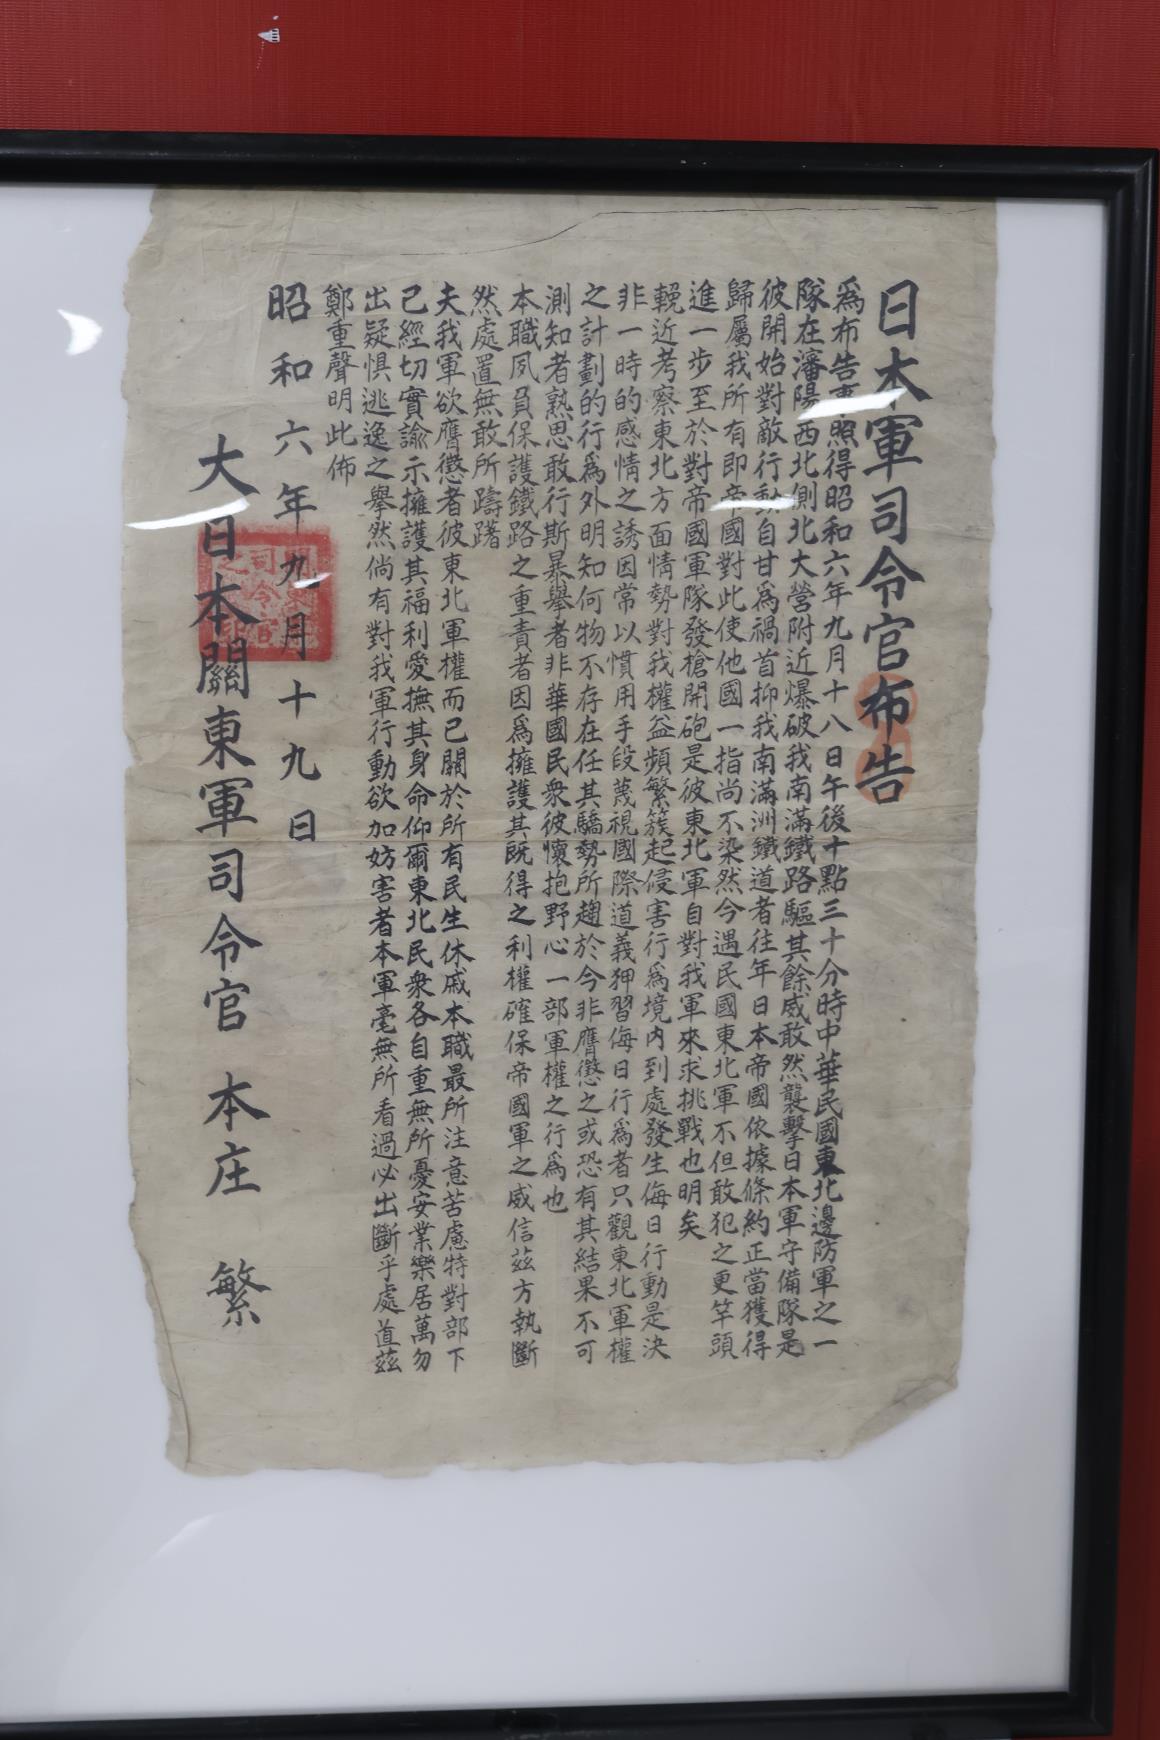 日本軍司令官布告
爲布告事照得昭和六年九月十八日午後十點三十分時中華民國東北邊防軍之一
隊在瀋陽西北側北大營附近爆破我南滿鐵路驅其餘威敢然襲擊日本軍守備隊是
彼開始對敵行動自甘爲禍首抑我南滿洲鐵道者往年日本帝國依據條約正當獲得
歸屬我所有即帝國對此使他國一指尚不染然今遇民國東北軍不但敢犯之更竿頭
進一步至於對帝國軍隊發槍開砲是彼東北軍自對我軍來求挑戰也明矣
輓近考察東北方面情勢對我權益頻繁簇起侵害行爲境内到處發生侮日行動是決
非一時的感情之誘因常以慣用手段蔑視國際道義狎習侮日行爲者只觀東北軍權
之計劃的行爲外明知何物不存在任其驕勢所趨於今非膺懲之或恐有其結果不可
測知者熟思敢行斯暴舉者非華國民衆彼懷抱野心一部軍權之行爲也
本職夙負保護鐵路之重責者因爲擁護其既得之利權確保帝國軍之威信茲方執斷
然處置無敢所躊躇
夫我軍欲膺懲者彼東北軍權而已關於所有民生休戚本職最所注意苦慮特對部下
已經切實諭示擁護其福利愛撫其身命仰爾東北民衆各自重無所憂安業樂居萬勿
出疑惧逃逸之舉然倘有對我軍行動欲加妨害者本軍毫無所看過必出斷乎處置茲
鄭重聲明此佈
昭和六年九月十九日
大日本關東軍司令官 本庄 繁